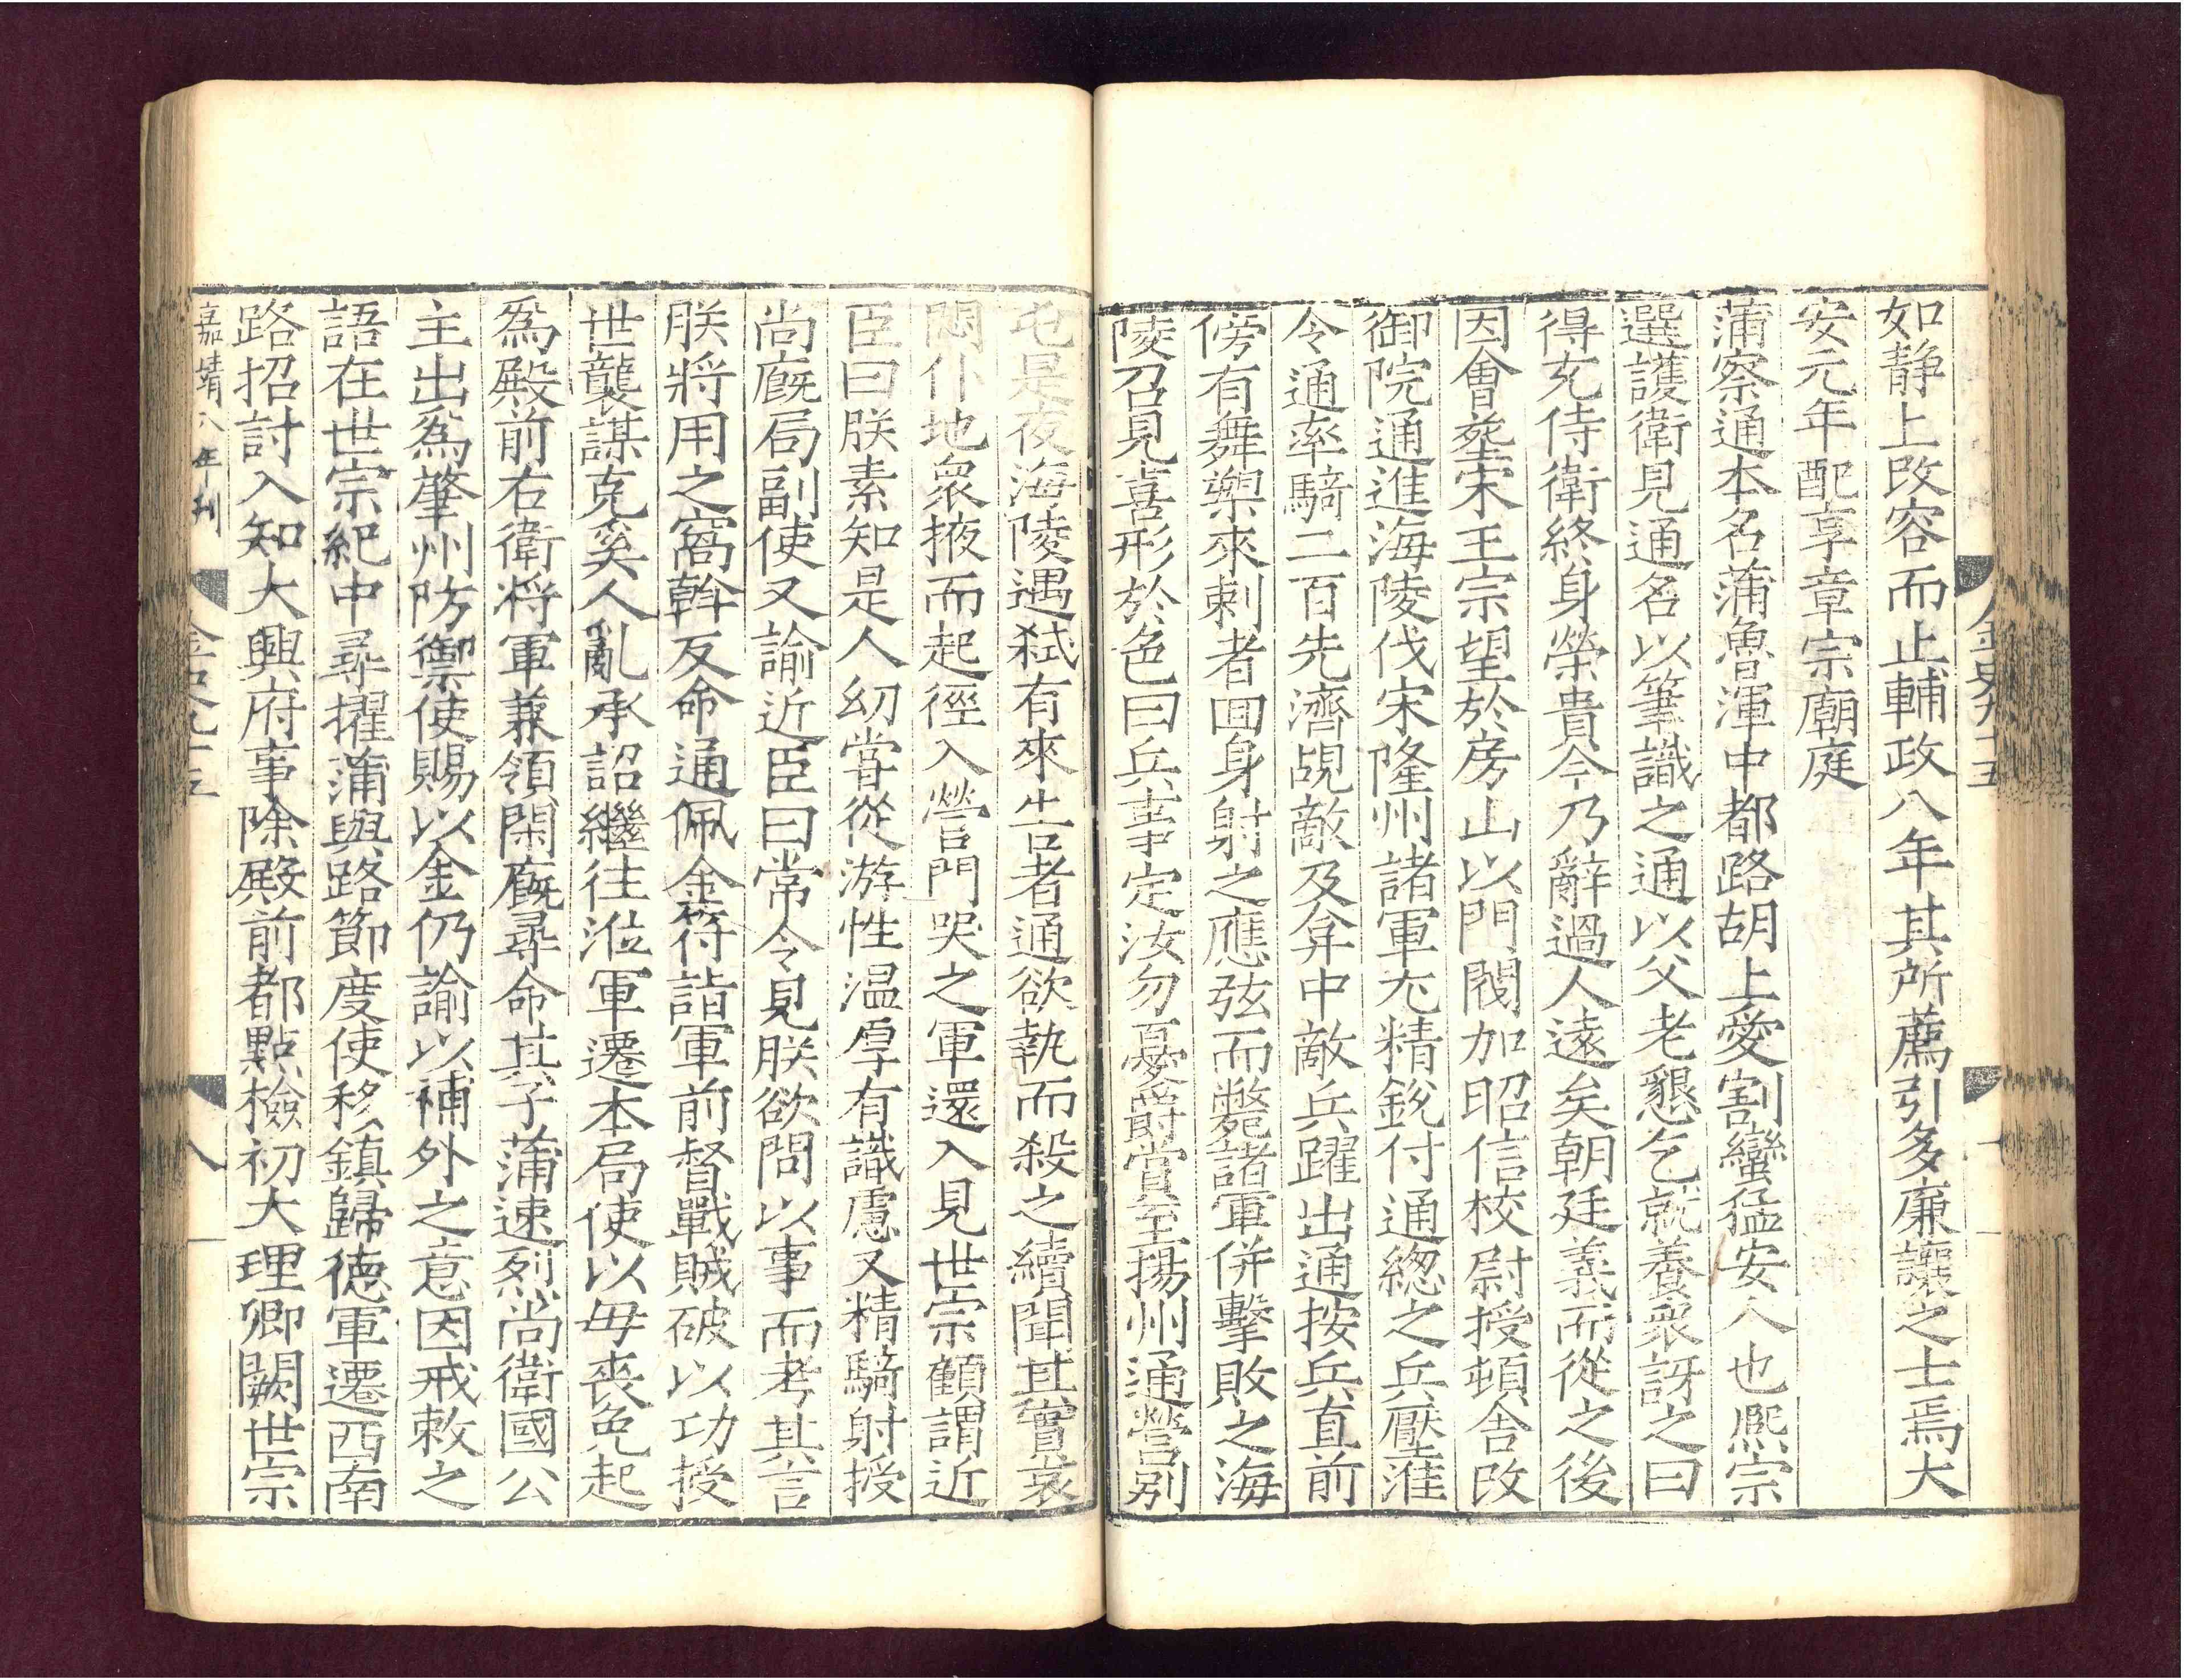 金史九十五
如靜上改容而止輔政八年其所薦引多廉讓之士焉大
安元年配享章宗廟庭
蒲察通本名蒲魯渾中都路胡土愛割蠻猛安人也熙宗
選護衛見通名以筆識之通以父老懇乞就養衆訝之曰
得充侍衛終身榮貴今乃辭過人遠矣朝廷義而從之後
因會塟宋王宗望於房山以門閥加昭信校尉授頓舍改
御院通進海陵伐宋隆州諸軍尤精銳付通緫之兵壓淮
令通率騎二百先濟覘敵及弇中敵兵躍出通按兵直前
傍有舞槊來刺者囬身射之應弦而斃諸軍併擊敗之海
陵召見喜形於色曰兵事定汝勿憂爵賞至揚州通營别
屯是夜海陵遇弑有來告者通欲執而殺之續聞其實哀
悶仆地衆掖而起徑入營門哭之軍還入見世宗顧謂近
臣曰朕素知是人幼甞從游性温厚有識慮又精騎射授
尚廐局副使又諭近臣曰常令見朕欲問以事而考其言
朕將用之窩斡反命通佩金符詣軍前督戰賊破以功授
世襲謀克奚人亂承詔繼往涖軍遷本局使以母喪免起
爲殿前右衛将軍兼領閑廐尋命其子蒲速烈尚衛國公
主出爲肇州防禦使賜以金仍諭以補外之意因戒敕之
語在世宗紀中尋擢蒲與路節度使移鎮歸德軍遷西南
路招討入知大興府事除殿前都點檢初大理卿闕世宗
嘉靖八年刊
八